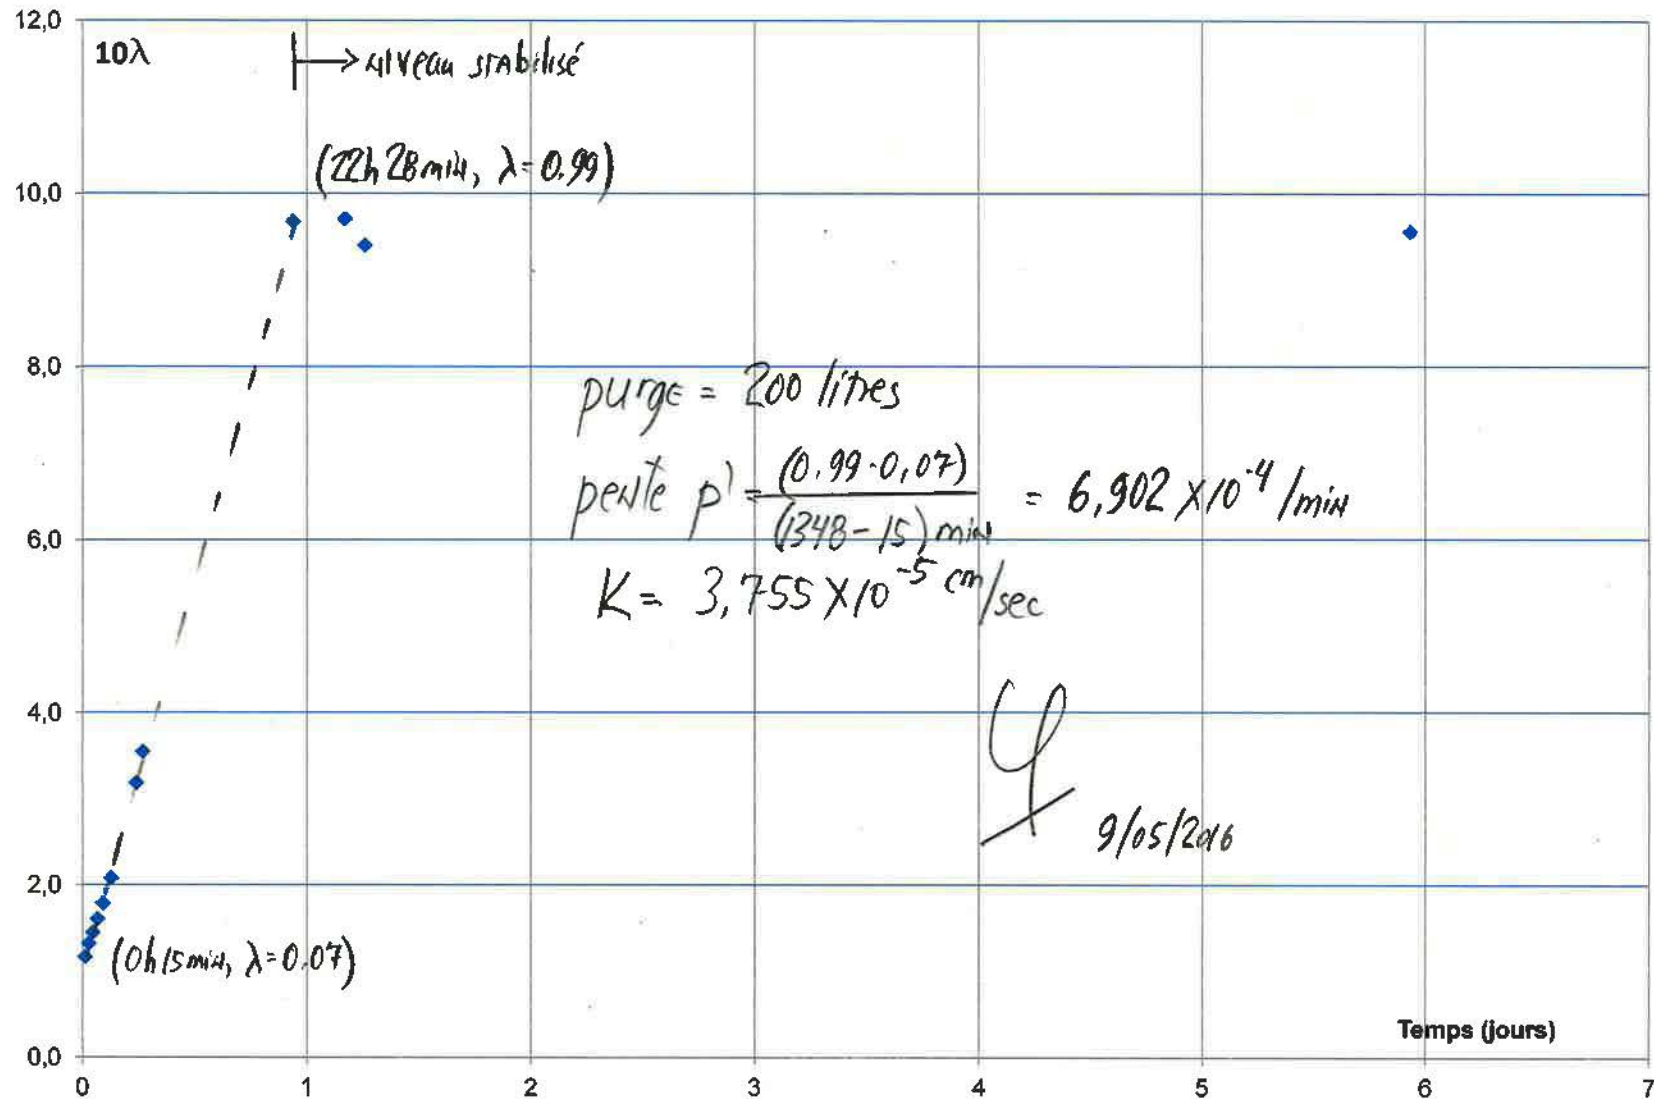 12,0
10λ
niveau stabilisé
(22h 28min, λ=0.99)
10,0
8,0
purge = 200 litres
pente p' = (0.99-0,07) / (1348-15) min = 6,902 X10^-4 /min
6,0
K= 3,755 X10^-5 cm/sec
4,0
9/05/2016
2,0
(0h15min, λ=0.07)
Temps (jours)
0,0
0 1 2 3 4 5 6 7